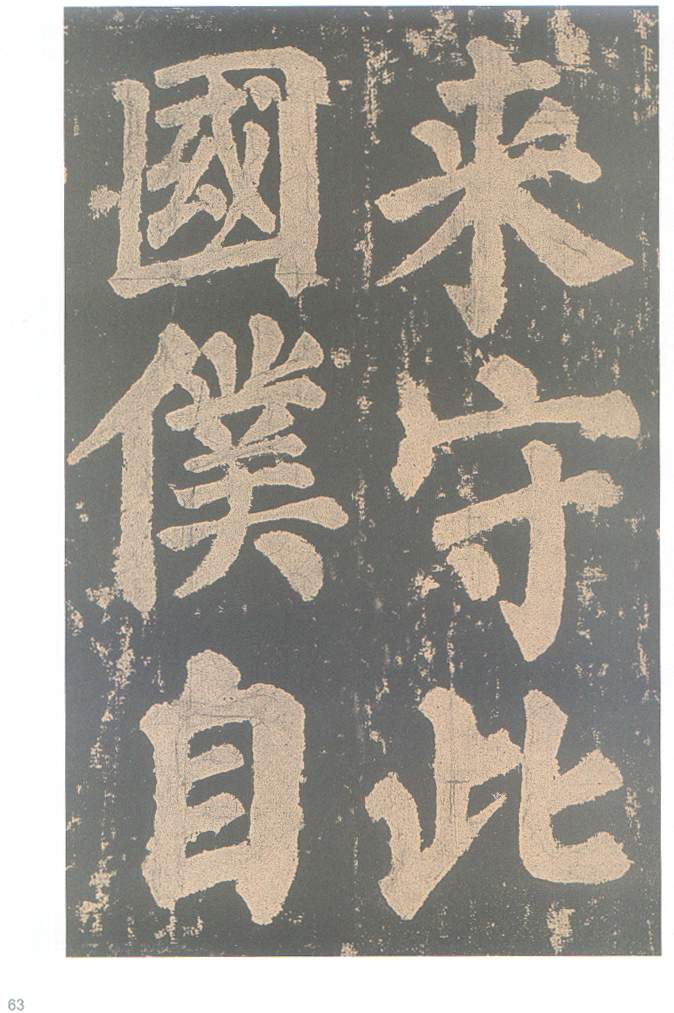 来守此
國僕自
63